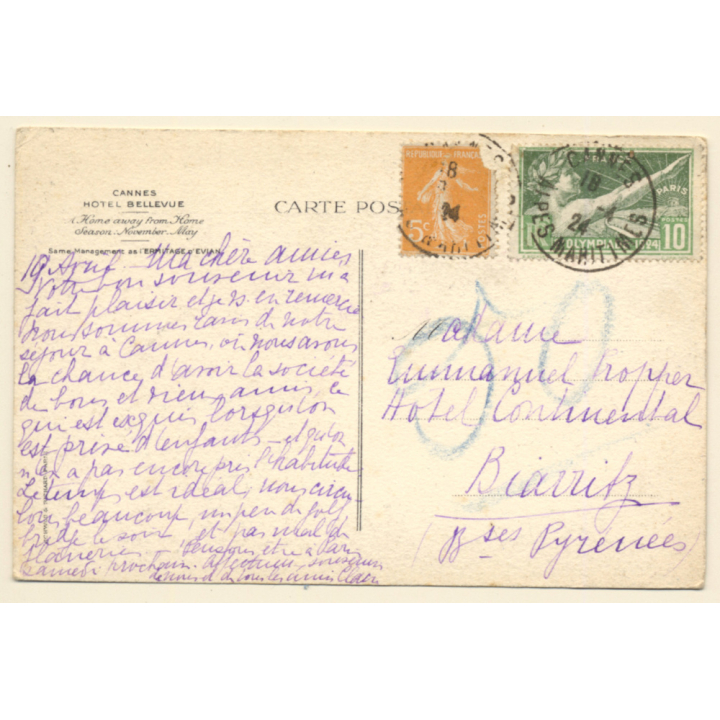 CANNES
HOTEL BELLEVUE
A Home away from Home
Season November-May
Same Management as l'ERMITAGE d'EVIAN
CARTE POS
REPUBLIQUE FRANÇAISE
5c
POSTES
CANNES
18
24
ALPES MARITIMES
PARIS
OLYMPIADES 1924
POSTES
10
30
19 Ma chère amie
Votre bon souvenir m'a
fait plaisir et je vs en remercie
Nous sommes ravis de notre
séjour à Cannes, où nous avons
la chance d'avoir la société
de bons et vieux amis, ce
qui est exquis lorsqu'on
est privé d'enfants - et qu'on
n'en a pas encore pris l'habitude
Le temps est idéal, nous
beaucoup, un peu de golf,
bridge le soir et pas mal de
flâneries.
samedi prochain.
Madame
Emmanuel Propper
Hotel Continental
Biarritz
(Bses Pyrenées)